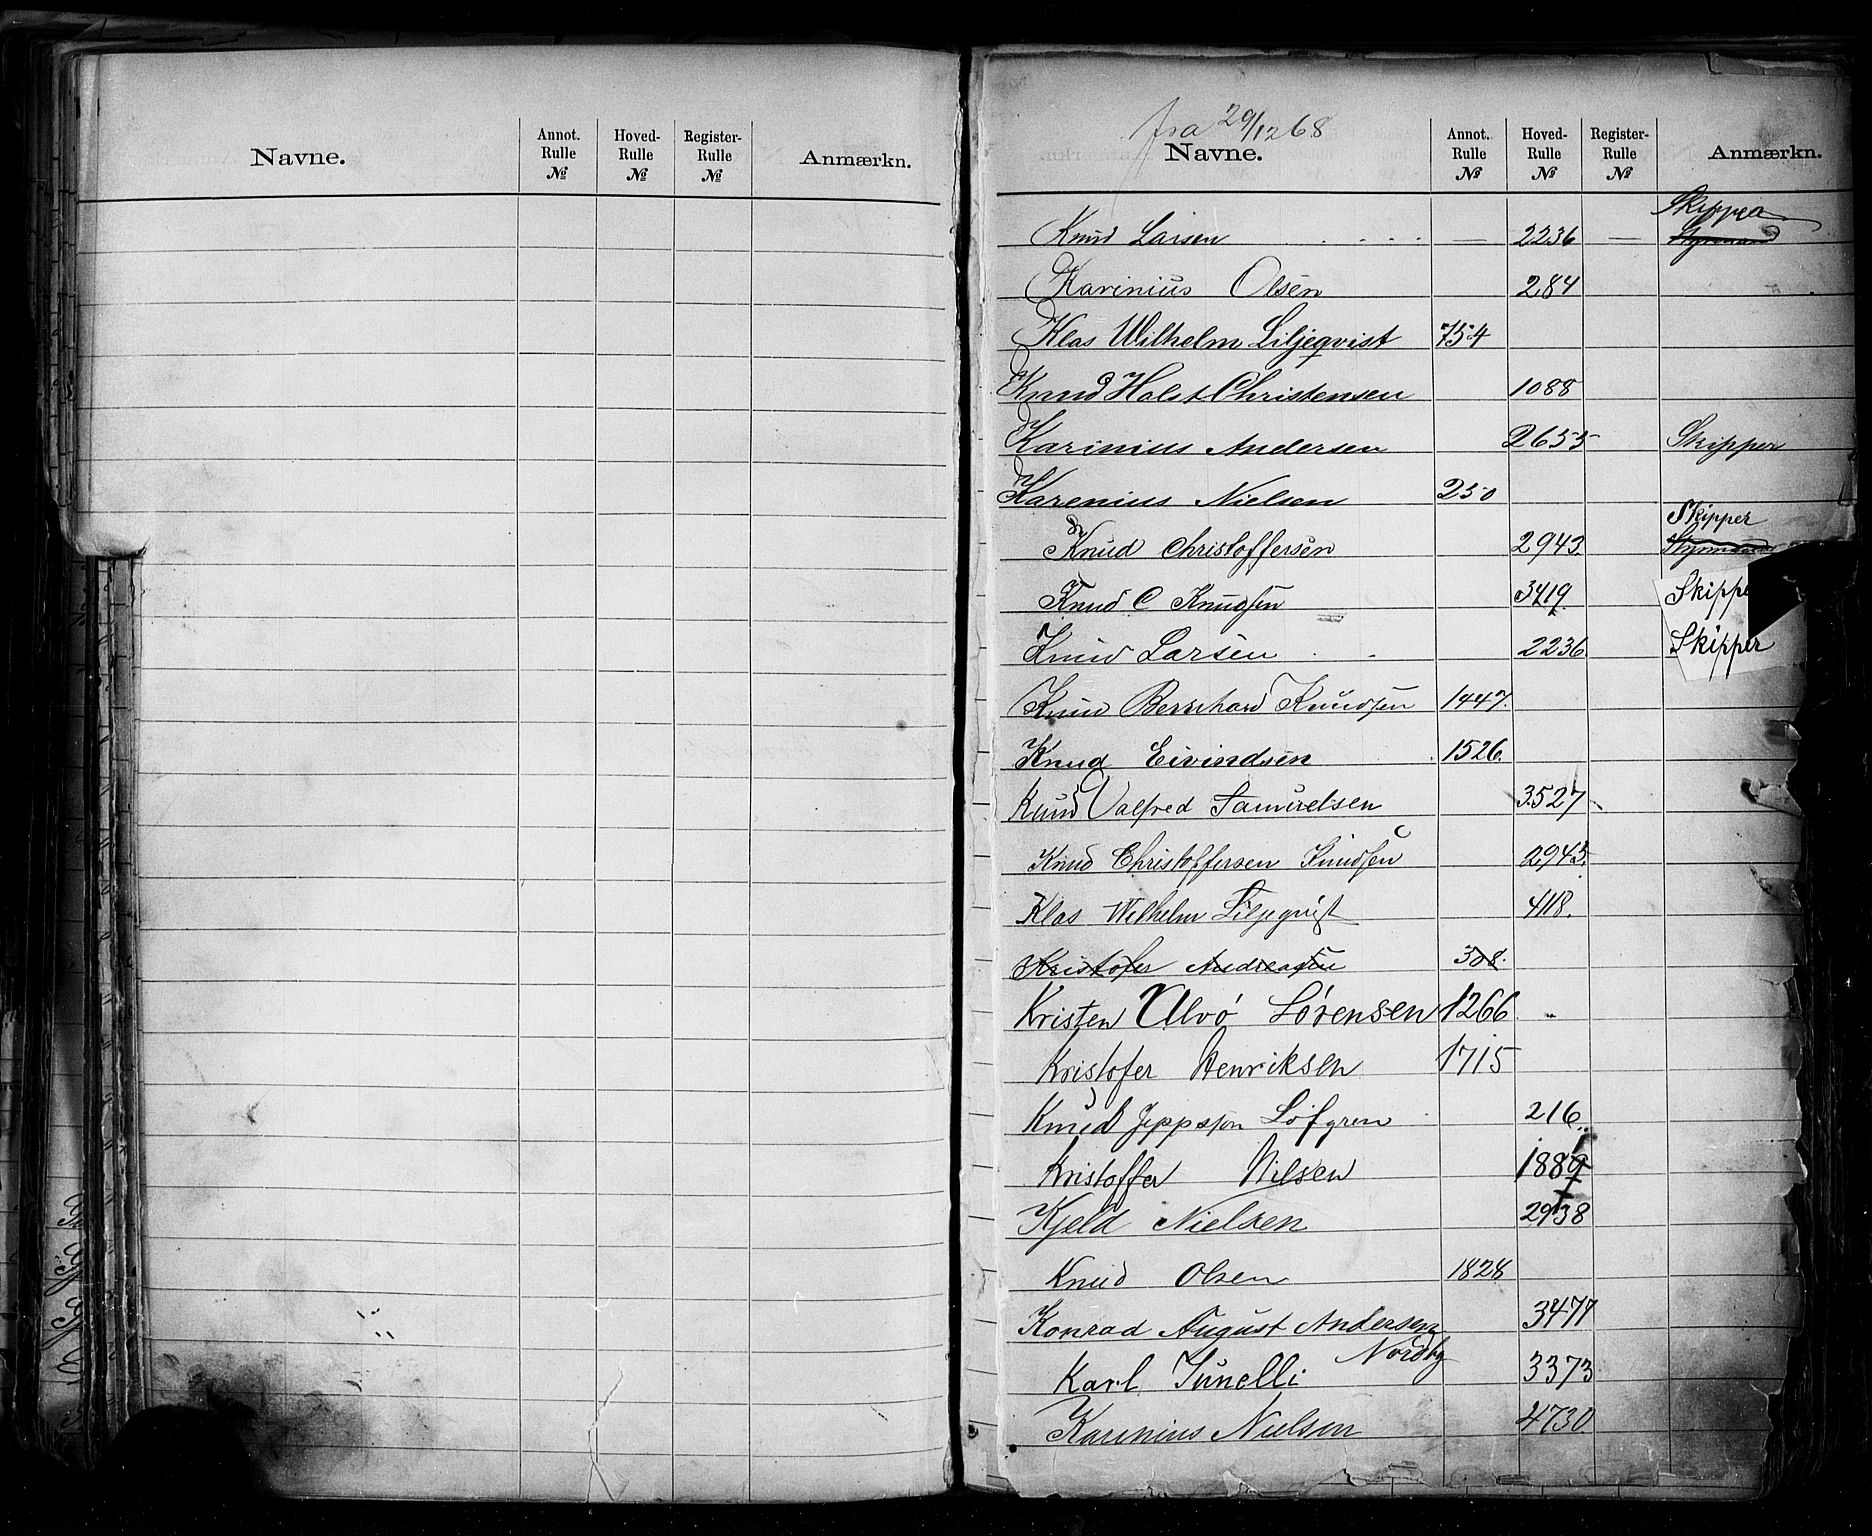 Navne. Annot. Rulle № Hoved- Rulle № Register- Rulle № Anmærkn.
fra 29/12 68
Navne. Annot. Rulle № Hoved- Rulle № Register- Rulle № Anmærkn.
Skipper
Knud Larsen — 2236 — Styrmand
Karinius Olsen 284
Klas Wilhelm Liljeqvist 754
Knud Holst Christensen 1088
Karinius Andersen 2655 Skipper
Karenius Nielsen 250
Skipper
Knud Christoffersen 2943 Styrmand
Knud C Knudsen 3419 Skippe
Knud Larsen 2236 Skipper
Knud Bernhard Knudsen 1447.
Knud Eivindsen 1526.
Knud Valfred Samuelsen 3527
Knud Christoffersen Knudsen 2943.
Klas Wilhelm Liljeqvist 418.
Kristofer Andreasen 308.
Kristen Ulvö Sörensen 1266
Kristofer Henriksen 1715
Knud Jeppsson Löfgren 216.
Kristoffer Nilsen 1889
Kjeld Nielsen 2938
Knud Olsen 1828
Konrad August Andersen 3477
Nordby
Karl Sunelli 3373
Karenius Nielsen 4730